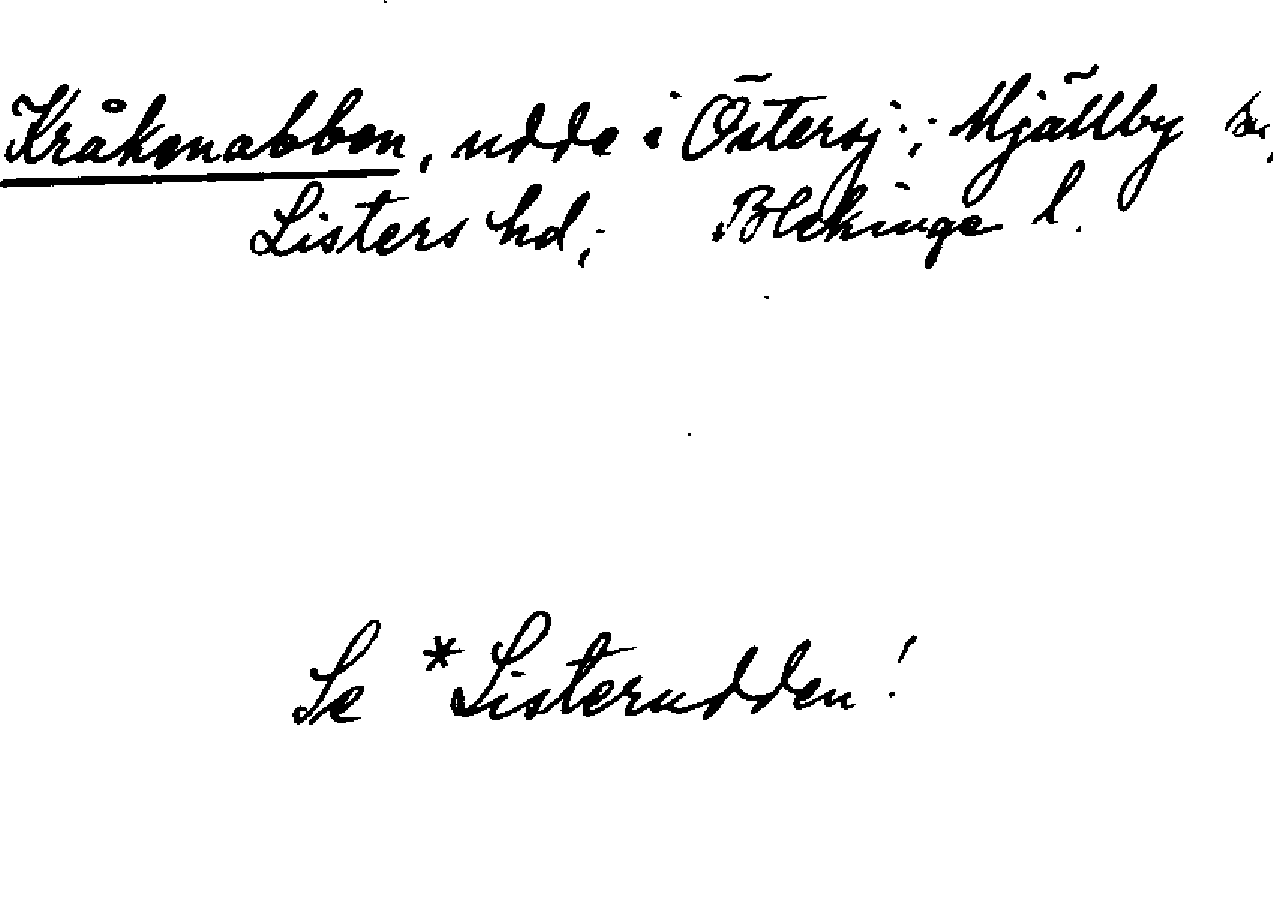 Kråkenabben, udde i Östersj.; Mjällby sn,
Listers hd; Blekinge l.
Se *Listerudden!